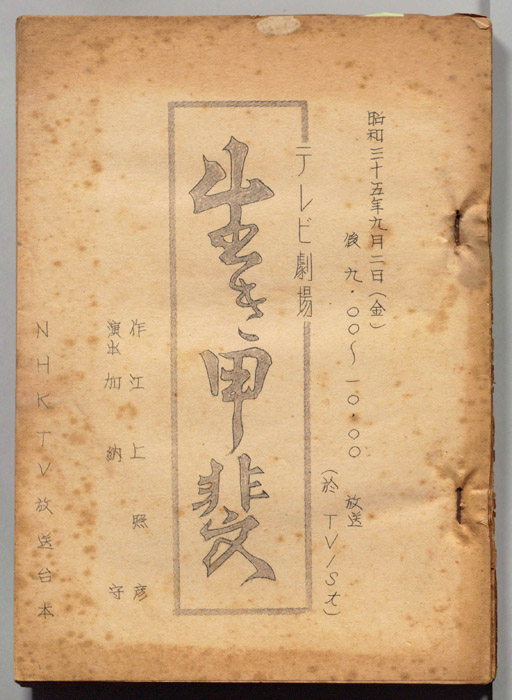 昭和三十五年九月二日(金)
後九・〇〇〜一〇・〇〇 放送
(於 TV1St)
テレビ劇場
生き甲斐
作 江上照彦
演出 加納守
NHKTV放送台本